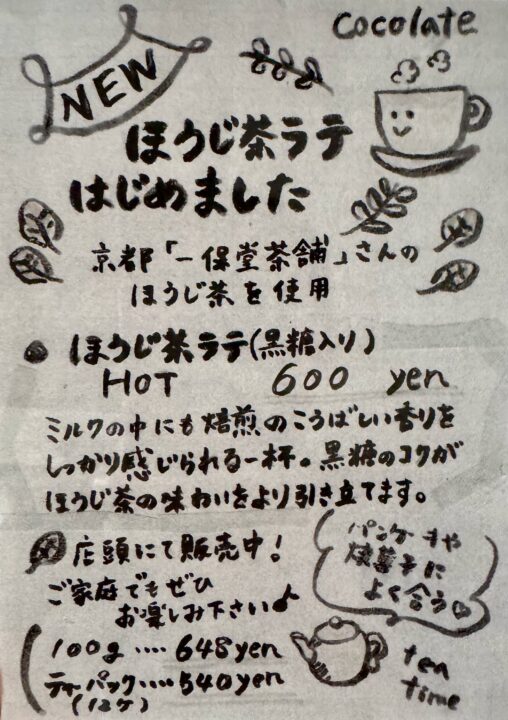 cocolate
NEW
ほうじ茶ラテ
はじめました
京都「一保堂茶舗」さんの
ほうじ茶を使用
● ほうじ茶ラテ(黒糖入り)
HOT 600 yen
ミルクの中にも焙煎のこうばしい香りを
しっかり感じられる一杯。黒糖のコクが
ほうじ茶の味わいをより引き立てます。
店頭にて販売中!
ご家庭でもぜひ
お楽しみ下さい♪
100g ‥‥ 648yen
ティーパック ‥‥ 540yen
(12ケ)
パンケーキや
焼菓子に
よく合う♡
tea
time